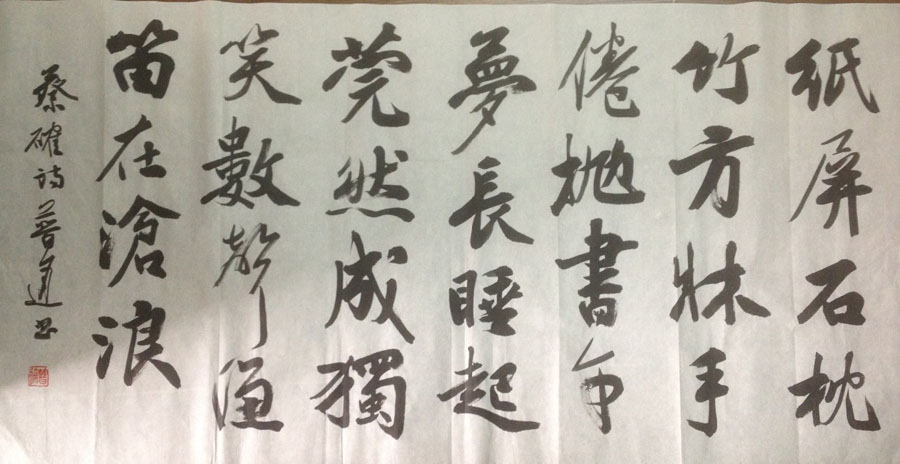 紙屏石枕
竹方牀手
倦抛書午
夢長睡起
莞然成獨
笑數聲漁
笛在滄浪
蔡確诗普书